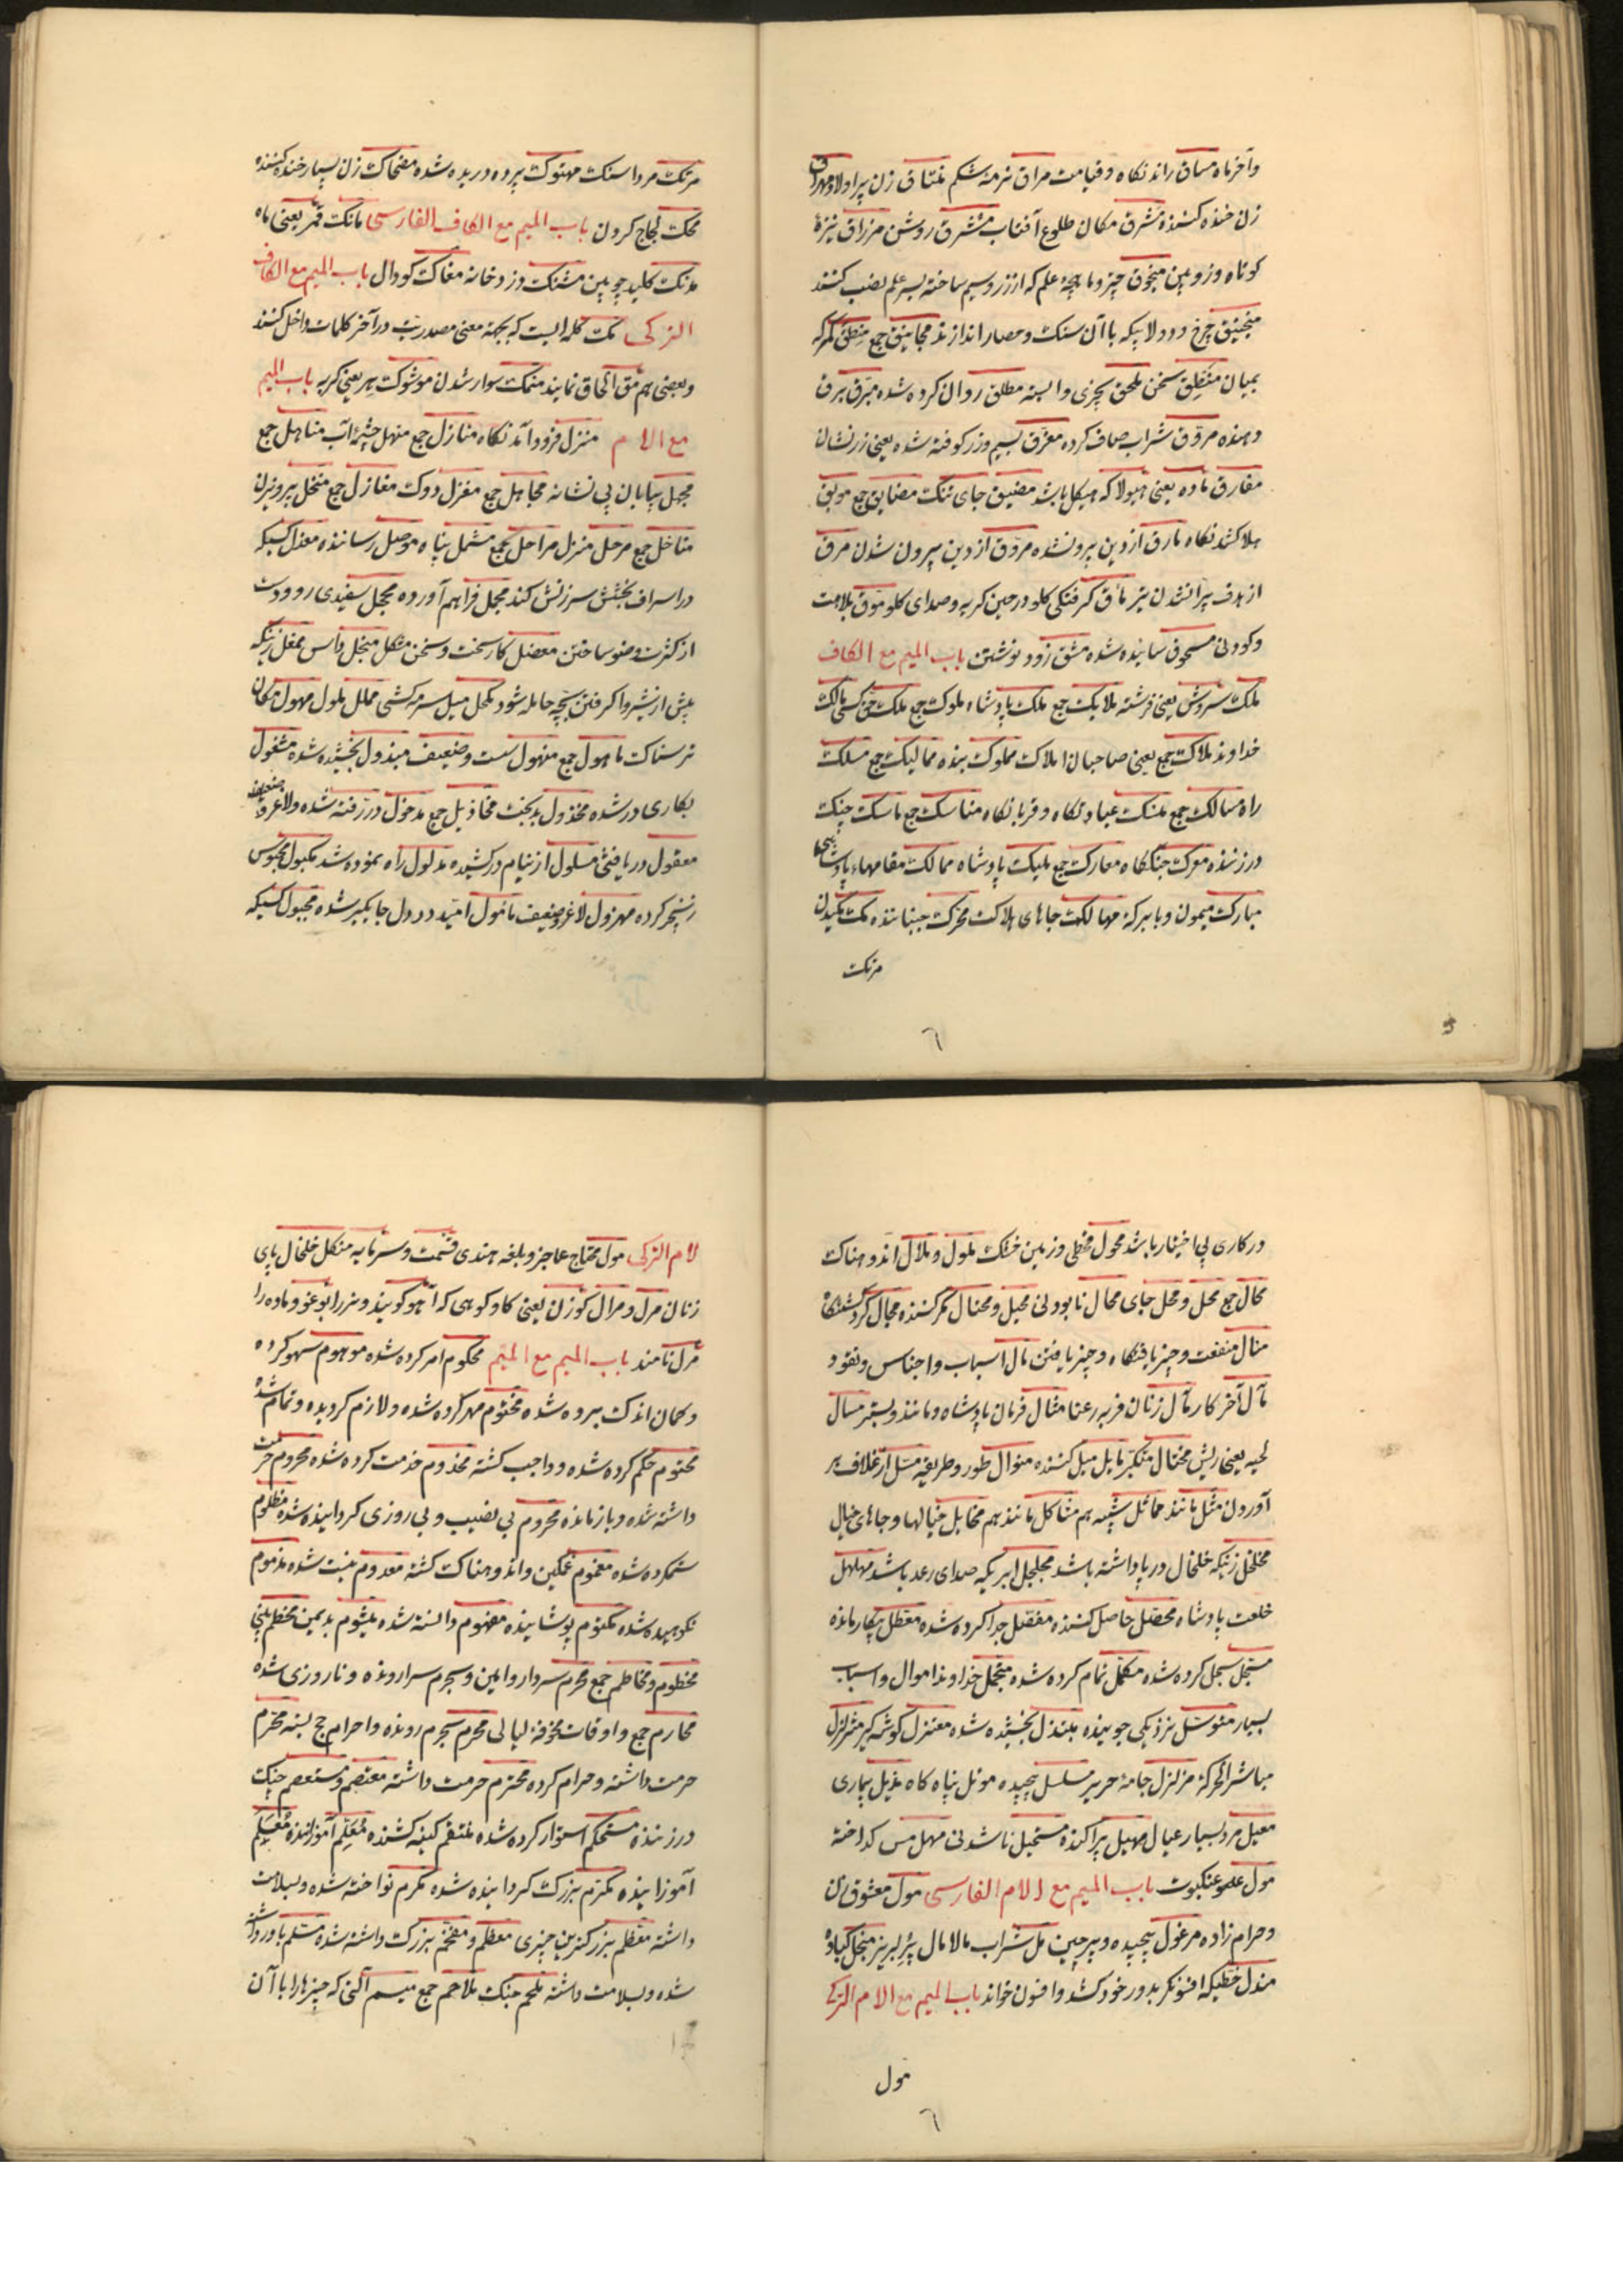 وآخر ماه مساق راند نکاه وقیامت مراق نرمهٔ شکم منتاق زن پر اولاد مهراق
زن خنده کننده مشرق مکان طلوع آفتاب مشرق روشن مزراق نیزهٔ
کوتاه وزوبین منجوق چتر وماهچهٔ علم که از زر وسیم ساخته بسر علم نصب کنند
منجنیق چرخ ودولابیکه با آن سنک وحصار اندازند مجانیق جمع منطق کمرکه
بمیان منتطق سخن ملحق بچیزی وابسته مطلق روان کرده شده مبرق برق
دهنده مروق شراب صاف کرده مغرق بسیم وزر کوفته شده یعنی زرنشان
مفارق ماده یعنی هیولا که هیکل باشد مضیق جای تنگ مضایق جمع موبق
هلاک شد نکاه مارق از دین بیرونشده مروق از دین بیرون شدن مرق
از هدف پرانشدن تیر مأق کرفتکی کلو در حین کریه وصدای کلو موق بلاهت
وکودنی مسحوق ساییده شده مشق زود نوشتن باب المیم مع الکاف
ملک سروش یعنی فرشته ملایک جمع ملک پادشاه ملوک جمع ملک حق کسی مالک
خداوند ملاک جمع یعنی صاحبان املاک مملوک بنده ممالیک جمع مسلک
راه مسالک جمع منسک عبادتکاه وقربانکاه مناسک جمع ماسک چنک
درزننده معرکت جنگگاه معارک جمع ملیک پادشاه ممالک مقامهاء پادشاهی
مبارک میمون وبابرکه مهالک جاهای هلاک محرک جنباننده مک مکیدن
مرتک
مرتک مرداسنک مهتوک پرده دریده شده مضحاک زن بسیار خنده کننده
محک لجاج کردن باب المیم مع الکاف الفارسی مانک قمر یعنی ماه
مدنک کلید چوبین مشنک وزدخانه مغاک کودال باب المیم مع الکاف
الترکی مک کلمه ایست که بجهة معنی مصدریت در آخر کلمات داخل کنند
وبعضی هم مق الحاق نمایند منمک سوار شدن موشوک پر یعنی کربه باب المیم
مع اللام منزل فرود آمد نکاه منازل جمع منهل چشمهٔ آب مناهل جمع
مجهل بیابان بی نشانه مجاهل جمع مغزل دوک مغازل جمع منخل پرویزن
مناخل جمع مرحل منزل مراحل جمع مشمل پناه موصل رساننده معذل کسیکه
در اسراف بخشش سرزنش کند مجمل فراهم آورده محجل سفیدی رو ودست
از کثرت وضو ساختن معضل کار سخت وسخن مشکل منجل داس ممغل زنیکه
پیش از شیر واکرفتن بچه حامله شود مکحل میل سرمه کشی مملل ملول مهول مکان
ترسناک ماهول جمع منهول سست وضعیف مبذول بخشیده شده مشغول
بکاری در شده مخذول بدبخت مخاذیل جمع مدخول در رفته شده ولاغر وضعیف
معقول دریافتنی مسلول از نیام درکشیده مدلول راه نموده شد مکبول محبوس
زنجیر کرده مهزول لاغر وضعیف مامول امید در دل جایکیر شده مجبول کسیکه
در کاری بی اختیار باشد محول قحطی وزمین خشک ملول وملال اندوهناک
محال جمع محل ومحل جای محال نابودنی محیل ومحتال مکر کننده مجال کردشگاه
منال منفعت وچیز یافتگاه وچیز یافتن مال اسباب واجناس ونقود
مآل آخر کار رمآل زنان فربه رعنا مثال فرمان پادشاه ومانند وبستر مسال
لحیه یعنی ریش مختال متکبر مایل میل کننده منوال طور وطریقه مسل از غلاف بر
آوردن مثل مانند مماثل شبیه هم مشاکل مانند هم مخایل خیالها وجاهای خیال
مخلخل زنیکه خلخال در پا داشته باشد مجلجل ابریکه صدای رعد باشد مهلهل
خلعت پادشاه محصل حاصل کننده مفصل جدا کرده شده معطل بیکار مانده
مسجل سجل کرده شده مکمل تمام کرده شده متجمل خداوند اموال واسباب
بسیار متوسل نزدیکی جوینده مبتذل بخشیده شده معتزل کوشه کیر متزلزل
مباشر الحرکة مزلزل جامهٔ حریر مسلسل پیچیده موئل پناه کاه مذیل بیماری
معیل مرد بسیار عیال مهیل پراکنده مستحیل ناشدنی مهل مس کداخته
مول عمو عنکبوت باب المیم مع اللام الفارسی مول معشوق زن
وحرام زاده مرغول پیچیده وپرچین مل شراب مالامال پر لبریز منجل کیاه
مندل خطیکه افسونکر بدور خود کشد وافسون خواند باب المیم مع اللام الترکی
مول
لام الترکی مول محتاج عاجز وبلغه هندی قیمت وسرمایه منکل خلخال پای
زنان مرل ومرال کوزن یعنی کاو کوهی که آهو کویند ونر را بوغو وماده را
مرل نامند باب المیم مع المیم محکوم امر کرده شده موهوم سهو کرده
وکمان اندک برده شده مختوم مهر کرده شده ولازم کردیده وتمام شده
محتوم حکم کرده شده وواجب کشته مخدوم خدمت کرده شده محروم حرمت
داشته شده وبازمانده محروم بی نصیب وبی روزی کردانیده شده مظلوم
ستمکرده شده مغموم غمکین واندوهناک کشته معدوم نیست شده مذموم
نکوهیده شده مکتوم پوشانیده مفهوم دانسته شده میشوم بدیمن مخطم بینی
مخطوم ومخاطم جمع محرم سردار وامین ومجرم سرا رونده وناروزی شده
محارم جمع واوقات مخوفهٔ لیالی محرم بحرم رونده واحرام حج بسته محرم
حرمت داشته وحرام کرده محترم حرمت داشته معتصم ومستعصم چنک
درزننده مستحکم استوار کرده شده منتقم کینه کشنده معلم آموزاننده معلم
آموزانیده مکرم بزرک کردانیده شده مکرم نواخته شده وبسلامت
داشته معظم بزرکترین چیزی معظم ومفخم بزرک داشته شده مسلم باور داشته
شده وبسلامت داشته ملحم جنک ملاحم جمع میسم آلتی که چیزها را با آن